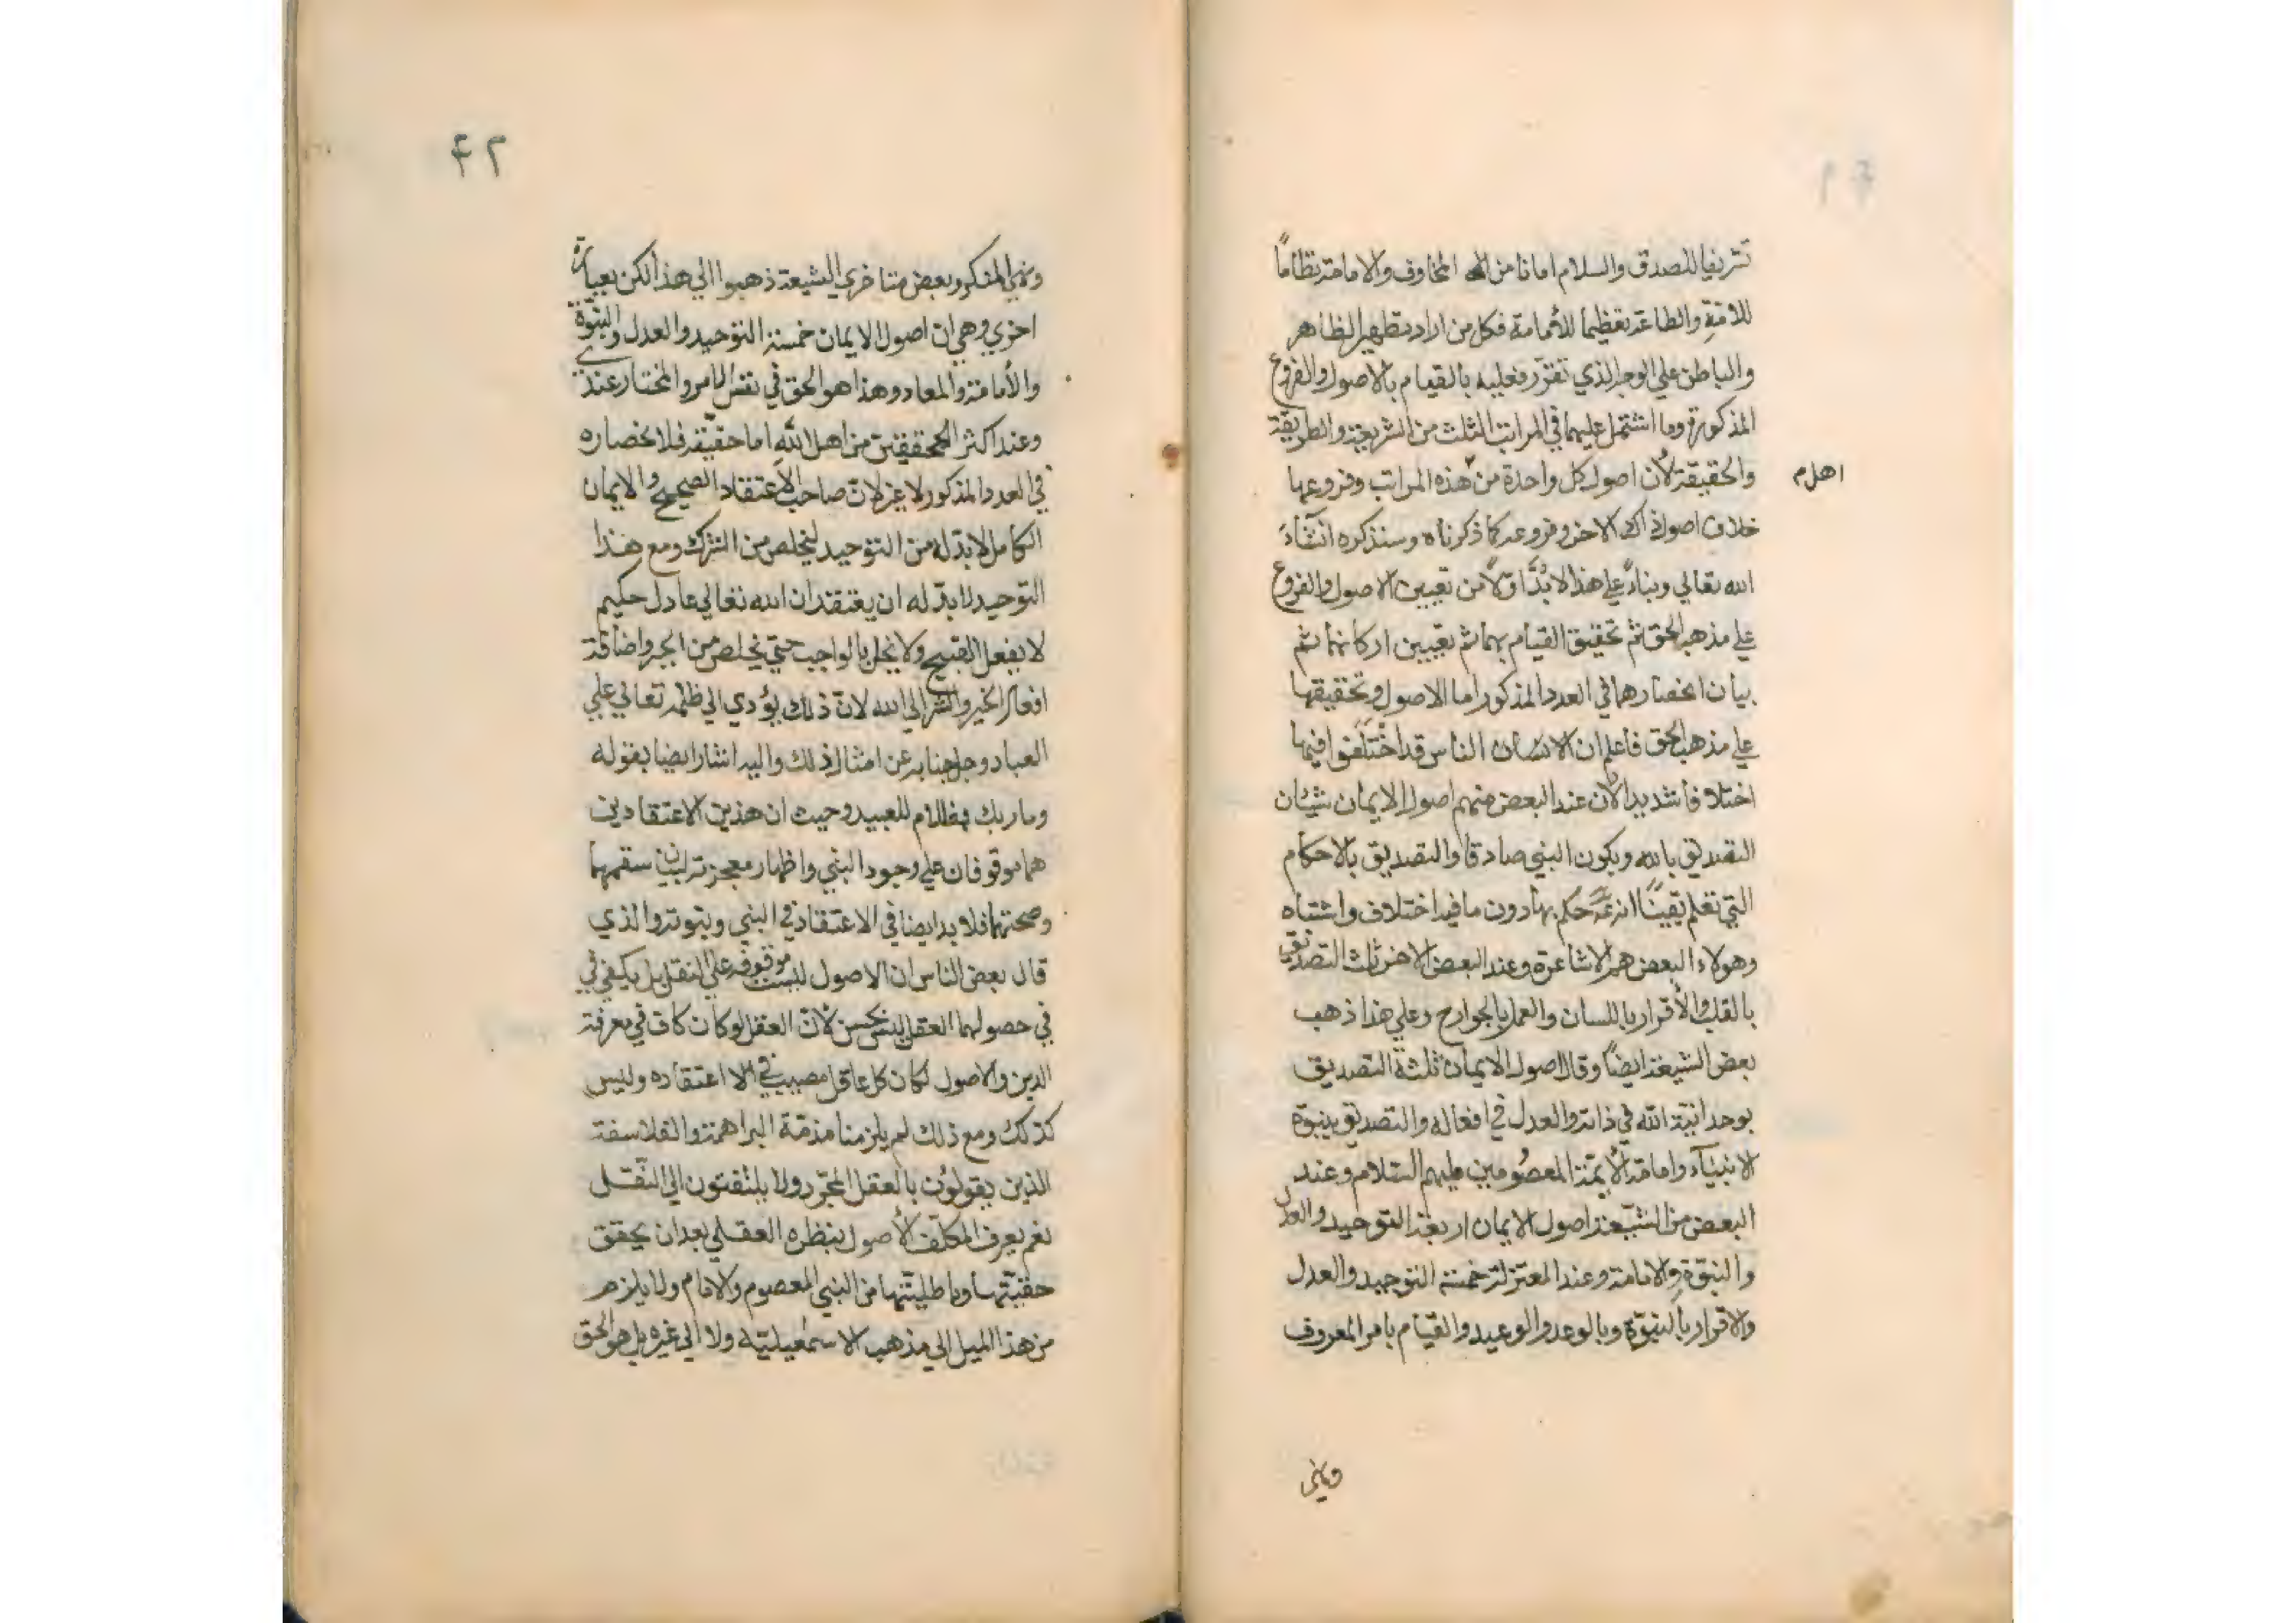 تشريفا للصدق والسلام امانا من المخاوف والامامة نظاماً
للامّةِ والطاعة تعظيما للأمامة فكل من اراد تطهير الظاهر
والباطن علي الوجه الذي تقرّر فعليه بالقيام بالاصول والفروع
المذكورة وما اشتمل عليهما في المراتب الثلث من الشريعة والطريقة
والحقيقة لأن اصول كل واحدة من هذه المراتب وفروعها
اهل م
خلاف اصول الاخر وفروعه كما ذكرناه وسنذكره انشآء
الله تعالي وبناءً علي هذا لابُدَّ اوّلاً من تعيين الاصول والفروع
علي مذهب الحق ثم تحقيق القيام بهما ثم تعيين اركانهما ثم
بيان انحصارهما في العدد المذكور اما الاصول وتحقيقها
علي مذهب الحق فاعلم ان الناس قد اختَلَفوا فيها
اختلافا شديدا لأن عند البعض منهم اصول الايمان شيئان
التصديق بالله وبكون النبي صادقا والتصديق بالاحكام
التي تعلم يقينًا انه عَمَّ حكم بها دون ما فيه اختلاف واشتباه
وهولاء البعض هم الاشاعرة وعند البعض الاخر ثلث التصديق
بالقلب والأقرار باللسان والعمل بالجوارح وعلي هذا ذهب
بعض الشيعة ايضاً وقال اصول الايمان ثلثة التصديق
بوحدانيّة الله في ذاته والعدل في افعاله والتصديق بنبوّة
الانبيآء وامامة الأيمّة المعصُومين عليهم السّلام وعند
البعض من الشيّعة اصول الايمان اربعة التوحيد والعدل
والنبوّة والامامة وعند المعتزلة خمسة التوحيد والعدل
والاقرار بالنبوّة وبالوعد والوعيد والقيام بامر المعروف
ونهي
٤٢
ونهي المنكر وبعض متاخري الشيعة ذهبوا الي هذا لكن بعبارة
اخري وهي ان اصول الايمان خمسة التوحيد والعدل والنبوّة
والأمامة والمعاد وهذا هو الحق في نفس الامر والمختار عندي
وعند اكثر المحققين من اهل اللّه اما حقيّته فلانحصاره
في العدد المذكور لا غير لانّ صاحب الاعتقاد الصحيح والايمان
الكامل لابدّ له من التوحيد ليخلص من الشرك ومع هذا
التوحيد لابدّ له ان يعتقد ان الله تعالي عادل حكيم
لا يفعل القبيح ولا يخل بالواجب حتي يخلص من الجبر واضافة
افعال الخير والشر الي الله لانّ ذلك يؤدي الي ظلمه تعالي علي
العباد وجل جنابه عن امثال ذلك واليه اشار ايضا بقوله
وما ربك بظلام للعبيد وحيث ان هذين الاعتقادين
هما موقوفان علي وجود النبي واظهار معجزته لبيان سقمهما
وصحتهما فلا بد ايضا في الاعتقاد في النبي وبنوته والذي
قال بعض الناس ان الاصول ليست موقوفة علي النقل بل يكفي في
في حصولهما العقل ليس بحسن لأنّ العقل لو كان كاف في معرفة
الدين والاصول لكان كل عاقل مصيب في اعتقاده وليس
كذلك ومع ذلك لم يلزمنا مذمّة البراهمة والفلاسفة
الذين يقولوُن بالعقل المجّرد ولا يلتفتون الي النّقل
نعم يعرف المكلّف الأصول بنظره العقلي بعد ان يحقق
حقيّتها وباطليّتها من النبي المعصوم والامام ولا يلزم
من هذا الميل الي مذهب الاسمٰعيليّة ولا الي غيره بل هو الحق